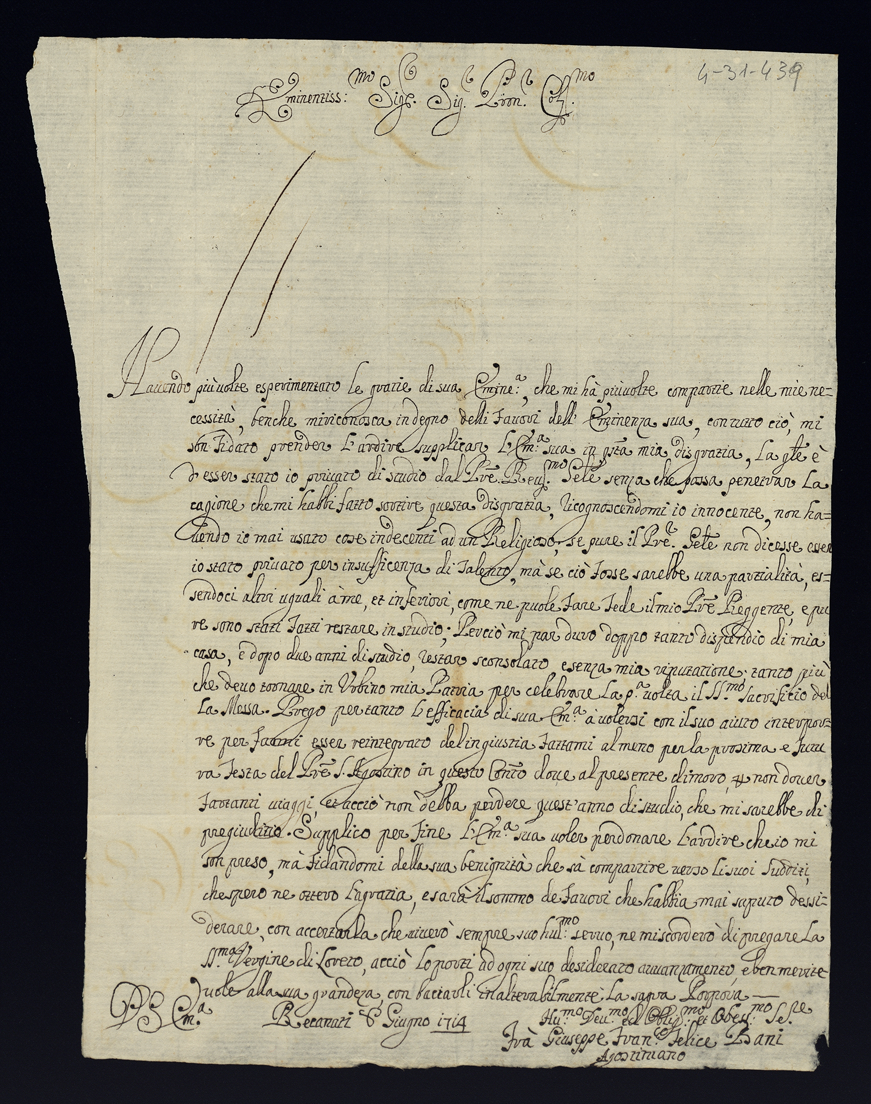 4-31-439
Eminentiss:mo Sig.e Sig.r Pron. Col.mo
Havendo più volte esperimentato le gratie di sua Emine.a, che mi hà più volte compartite nelle mie ne=
cessità, benche mi riconosca indegno delli Favori dell' Eminenza sua, con tutto ciò, mi
son Fidato prender l'ardire supplicar L'Em.a sua in qsta mia disgratia, La qle è
d'esser stato io privato di studio dal Pre. Reu.mo Gnle senza che possa penetrar La
cagione che mi habbi fatto sortire questa disgratia, ricognoscendomi io innocente, non ha=
uendo io mai usato cose indecenti ad un Religioso, se pure il Pre. Gnle non dicesse esser
io stato privato per insufficenza di Talento, mà se ciò Fosse sarebbe una partialità, es=
sendoci altri uguali à me, et inferiori, come ne puole Fare Fede il mio Pre Reggente, e pu
re sono stati Fatti restare in studio; Perciò mi par duro doppo tanto dispendio di mia
casa, e dopo due anni di studio, restar sconsolato e senza mia riputatione; tanto più
che devo tornare in Urbino mia Patria per celebrare La p.a volta il SS.mo sacrificio del
La Messa. Prego per tanto l'efficacia di sua Em.a à volersi con il suo aiuto interpor
re per Farmi esser reintegrato del ingiustia Fattami al meno per la prosima e Futu
ra Festa del Pre S. Agostino in questo Conto dove al presente dimoro, p non dover
Far tanti viaggi, et acciò non debba perdere quest'anno di studio, che mi sarebbe di
pregiuditio. Supplico per Fine L'Em.a sua voler perdonare L'ardire che io mi
son preso, mà Fidandomi della sua benignità che sà compartire verso li suoi sudditi,
che spero ne otterò la gratia, e sarà il sommo de Favori che habbia mai saputo dessi=
derare, con accertarla che viverò sempre suo hu.mo servo, ne mi scorderò di pregare La
SS.ma Vergine di Loreto, acciò Lo porti ad ogni suo desiderato avvanzamento, e ben merite
vole alla sua grandeza, con baciarli inalterabilmente La sagra Porpora
DS Em.a Recanati 8 Giugno 1714 Hu.mo Deu.mo ed Oblig.mo et Obess.mo Se.re
Frà Giuseppe Fran. Felice Bani
Agostiniano